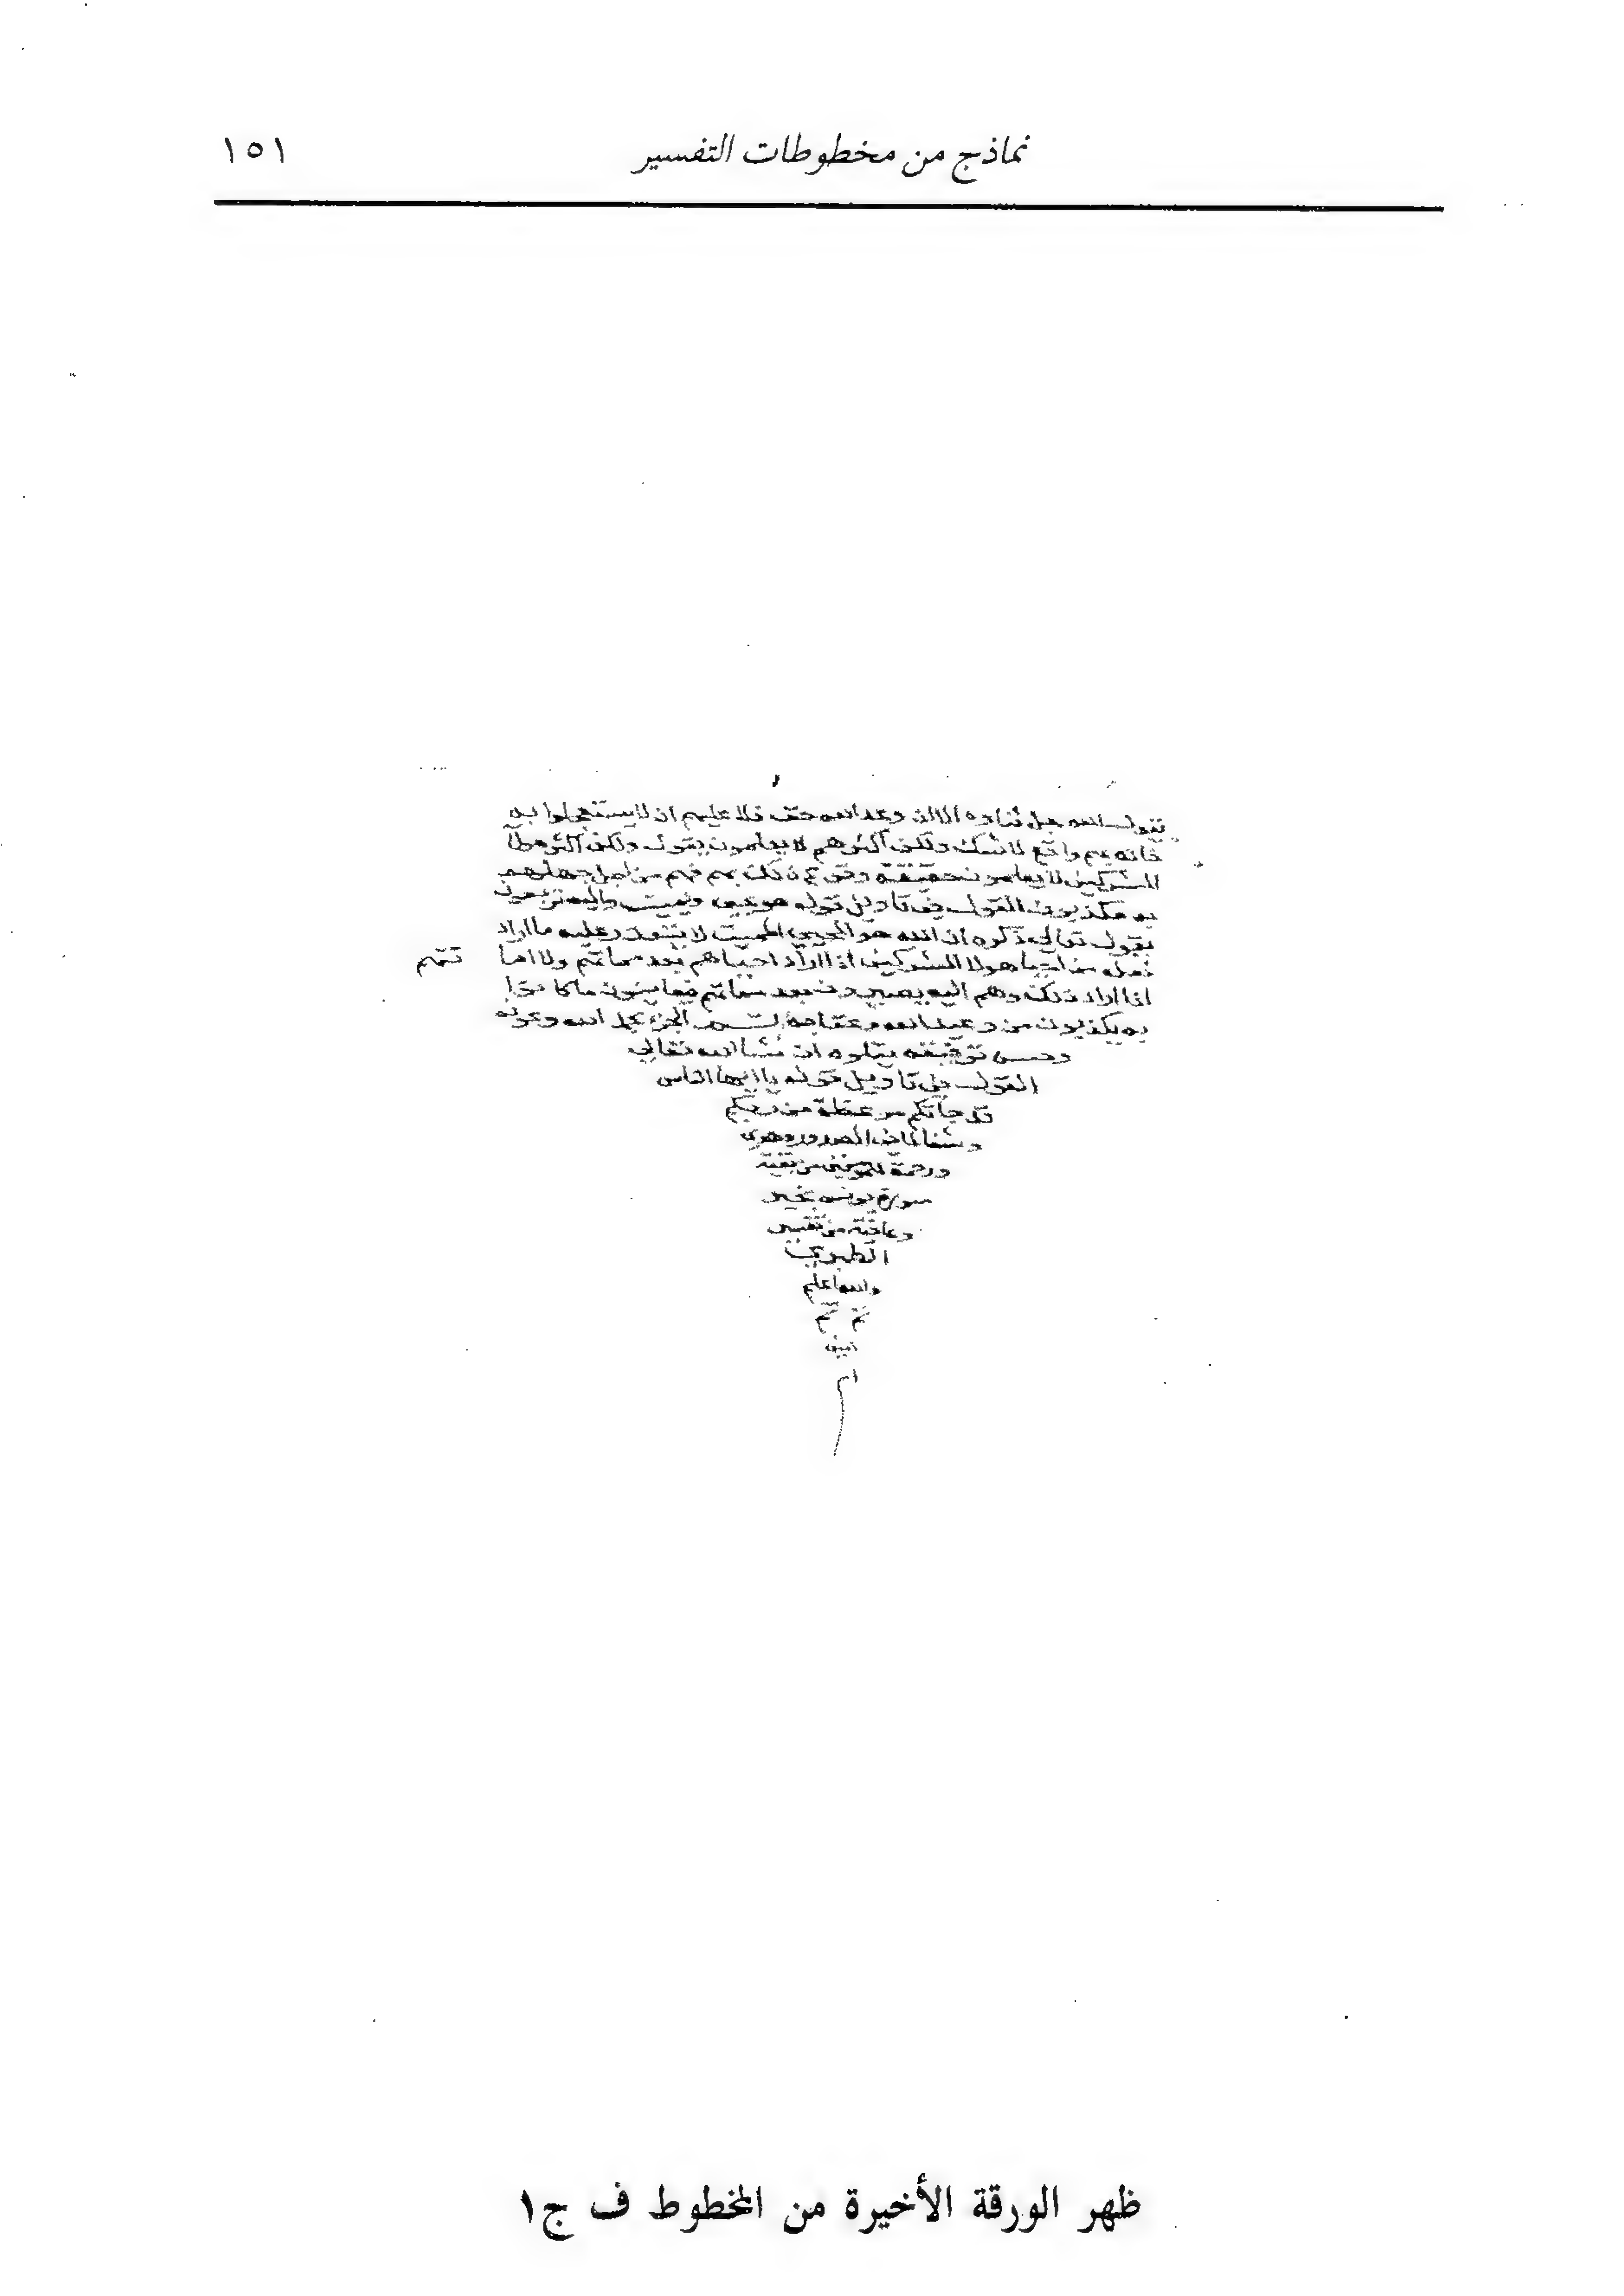 نماذج من مخطوطات التفسير ١٥١
يقول الله جل ثناوه الا ان وعد الله حق فلا عليهم ان لا يستعجلوا به
فانه بهم واقع لا شك ولكن اكثرهم لا يعلمون يقول ولكن اكثر هولا
المشركين لا يعلمون حقيقة وقوع ذلك بهم فهم من اجل جهلهم
به مكذبون القول في تاويل قوله هو يحيي ويميت واليه ترجعون
يقول تعالى ذكره ان الله هو المحيي المميت لا يتعذر عليه ما اراد
فعله من احيا هولا المشركين اذا اراد احياهم بعد مماتهم ولا اما تتهم
اذا اراد ذلك وهم اليه يصيرون بعد مماتهم فيعاينون ما كانوا
به يكذبون من وعيد الله وعقابه الجزء بحمد الله وعونه
وحسن توفيقه يتلوه ان شا الله تعالى
القول في تاويل قوله يا ايها الناس
قد جاتكم موعظة من ربكم
وشفا لما في الصدور وهدى
ورحمة للمومنين من بقية
سورة يونس بخير
وعافية من تفسير
الطبري
والله اعلم
تم تم
ظهر الورقة الأخيرة من المخطوط ف ج١